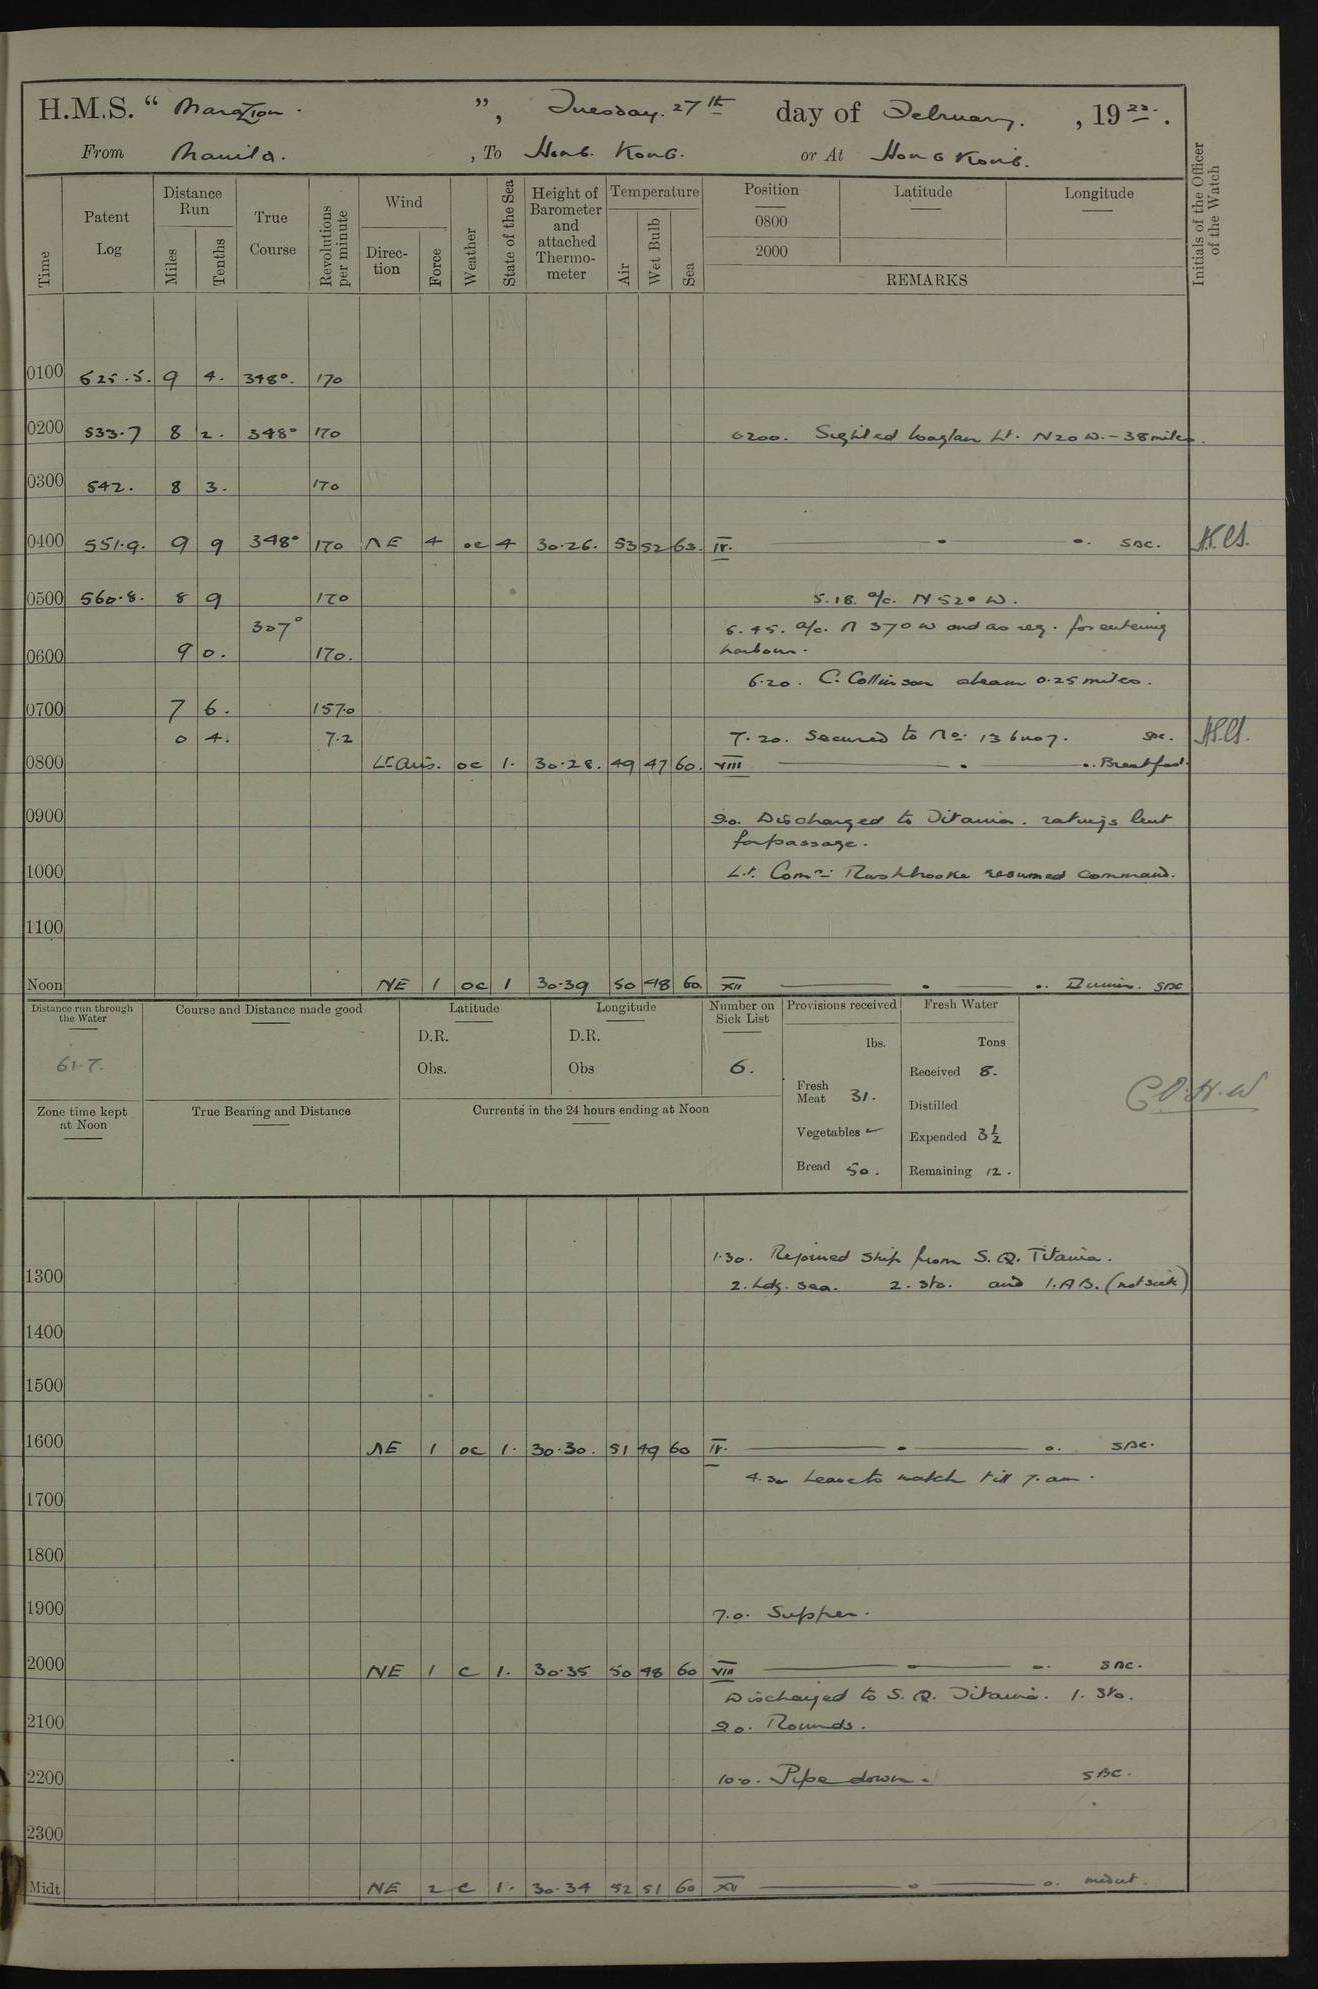 H.M.S. “ Marazion. ”, Tuesday. 27th day of February. , 1923.
From Manila. , To Hong Kong. or At Hong Kong.
Time
Patent Log
Distance Run
Miles
Tenths
True Course
Revolutions per minute
Wind
Direc-tion
Force
Weather
State of the Sea
Height of Barometer and attached Thermo-meter
Temperature
Air
Wet Bulb
Sea
Position
0800
2000
Latitude
Longitude
REMARKS
Initials of the Officer of the Watch
0100 525.5. 9 4. 348°. 170
0200 533.7 8 2. 348° 170 0200. Sighted Waglan Lt. N 20 W. - 38 miles.
0300 542. 8 3. 170
0400 551.9. 9 9 348° 170 NE 4 oc 4 30.26. 53 52 63. IV. SBC.
0500 560.8. 8 9 170 5.18. a/c. N 52° W.
307° 5.45. a/c. N 37° W and as req. for entering
0600 9 0. 170. harbour.
6.20. C. Collinson abeam 0.25 miles.
0700 7 6. 157.0
0 4. 7.2 7.20. Secured to No: 13 buoy. SBC.
0800 Lt airs. oc 1. 30.28. 49 47 60. VIII Breakfast.
0900 9.0. Discharged to Titania. ratings lent
for passage.
1000 Lt. Comr: Rushbrooke resumed command.
1100
Noon NE 1 oc 1 30.39 50 48 60. XII Dinner. SBC
Distance run through the Water
61.7.
Course and Distance made good
Latitude
D.R.
Obs.
Longitude
D.R.
Obs
Number on Sick List
6.
Provisions received
lbs.
Fresh Meat 31.
Vegetables
Bread 50.
Fresh Water
Tons
Received 8.
Distilled
Expended 3½
Remaining 12.
Zone time kept at Noon
True Bearing and Distance
Currents in the 24 hours ending at Noon
1.30. Rejoined ship from S.Q. Titania.
1300 2. Ldg. sea. 2. Sto. and 1. A.B. (not sick)
1400
1500
1600 NE 1 oc 1. 30.30. 51 49 60 IV. SBC.
4.30 Leave to watch till 7. am.
1700
1800
1900 7.0. Supper.
2000 NE 1 c 1. 30.35 50 48 60 VIII SBC.
Discharged to S.Q. Titania. 1. Sto.
2100 9.0. Rounds.
2200 10.0. Pipe down. SBC.
2300
Midt NE 2 c 1. 30.34 52 51 60 XII